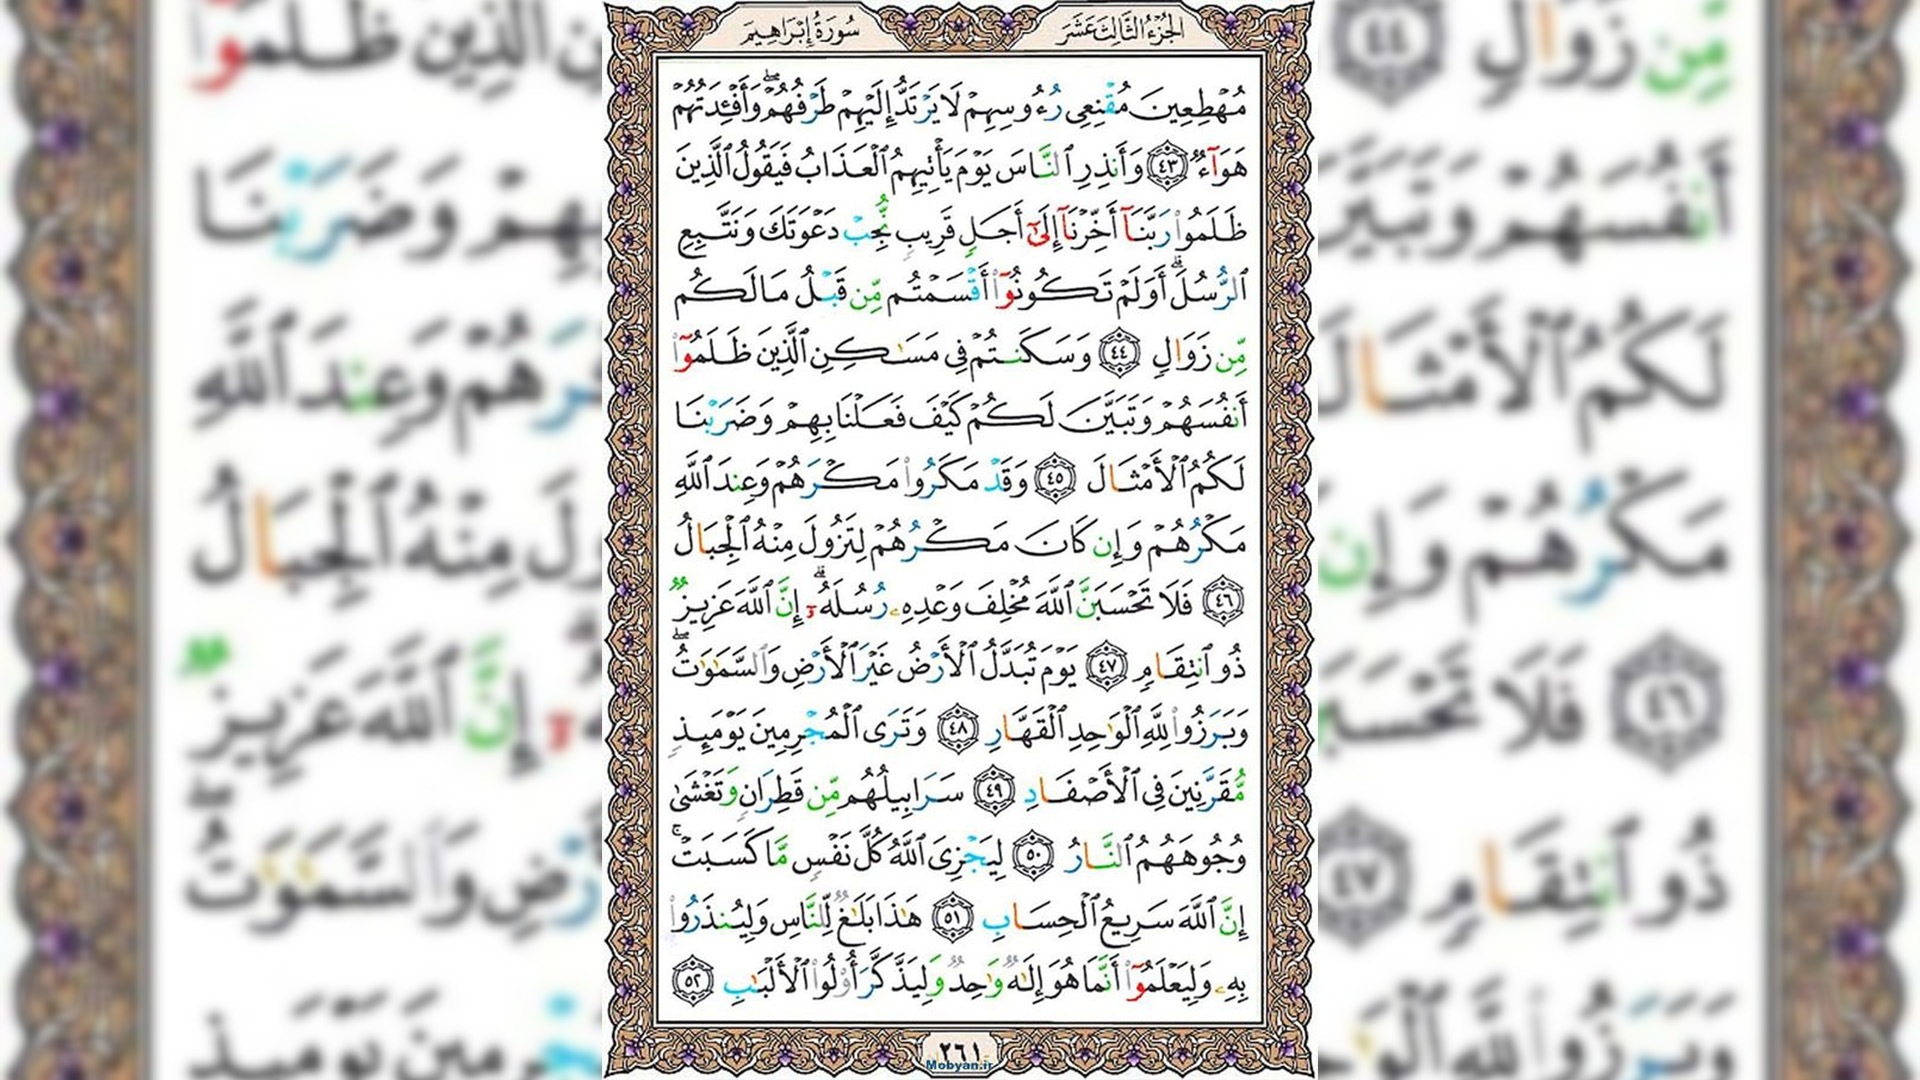 الجزء الثالث عشر
سورة إبراهيم
مُهْطِعِينَ مُقْنِعِى رُءُوسِهِمْ لَا يَرْتَدُّ إِلَيْهِمْ طَرْفُهُمْ ۖ وَأَفْـِٔدَتُهُمْ
هَوَآءٌ ﴿٤٣﴾ وَأَنذِرِ ٱلنَّاسَ يَوْمَ يَأْتِيهِمُ ٱلْعَذَابُ فَيَقُولُ ٱلَّذِينَ
ظَلَمُوا۟ رَبَّنَآ أَخِّرْنَآ إِلَىٰٓ أَجَلٍ قَرِيبٍ نُّجِبْ دَعْوَتَكَ وَنَتَّبِعِ
ٱلرُّسُلَ ۗ أَوَلَمْ تَكُونُوٓا۟ أَقْسَمْتُم مِّن قَبْلُ مَا لَكُم
مِّن زَوَالٍ ﴿٤٤﴾ وَسَكَنتُمْ فِى مَسَـٰكِنِ ٱلَّذِينَ ظَلَمُوٓا۟
أَنفُسَهُمْ وَتَبَيَّنَ لَكُمْ كَيْفَ فَعَلْنَا بِهِمْ وَضَرَبْنَا
لَكُمُ ٱلْأَمْثَالَ ﴿٤٥﴾ وَقَدْ مَكَرُوا۟ مَكْرَهُمْ وَعِندَ ٱللَّهِ
مَكْرُهُمْ وَإِن كَانَ مَكْرُهُمْ لِتَزُولَ مِنْهُ ٱلْجِبَالُ
﴿٤٦﴾ فَلَا تَحْسَبَنَّ ٱللَّهَ مُخْلِفَ وَعْدِهِۦ رُسُلَهُۥٓ ۗ إِنَّ ٱللَّهَ عَزِيزٌ
ذُو ٱنتِقَامٍ ﴿٤٧﴾ يَوْمَ تُبَدَّلُ ٱلْأَرْضُ غَيْرَ ٱلْأَرْضِ وَٱلسَّمَـٰوَٰتُ ۖ
وَبَرَزُوا۟ لِلَّهِ ٱلْوَٰحِدِ ٱلْقَهَّارِ ﴿٤٨﴾ وَتَرَى ٱلْمُجْرِمِينَ يَوْمَئِذٍ
مُّقَرَّنِينَ فِى ٱلْأَصْفَادِ ﴿٤٩﴾ سَرَابِيلُهُم مِّن قَطِرَانٍ وَتَغْشَىٰ
وُجُوهَهُمُ ٱلنَّارُ ﴿٥٠﴾ لِيَجْزِىَ ٱللَّهُ كُلَّ نَفْسٍ مَّا كَسَبَتْ ۚ
إِنَّ ٱللَّهَ سَرِيعُ ٱلْحِسَابِ ﴿٥١﴾ هَـٰذَا بَلَـٰغٌ لِّلنَّاسِ وَلِيُنذَرُوا۟
بِهِۦ وَلِيَعْلَمُوٓا۟ أَنَّمَا هُوَ إِلَـٰهٌ وَٰحِدٌ وَلِيَذَّكَّرَ أُو۟لُوا۟ ٱلْأَلْبَـٰبِ ﴿٥٢﴾
٢٦١
Mobyan.ir